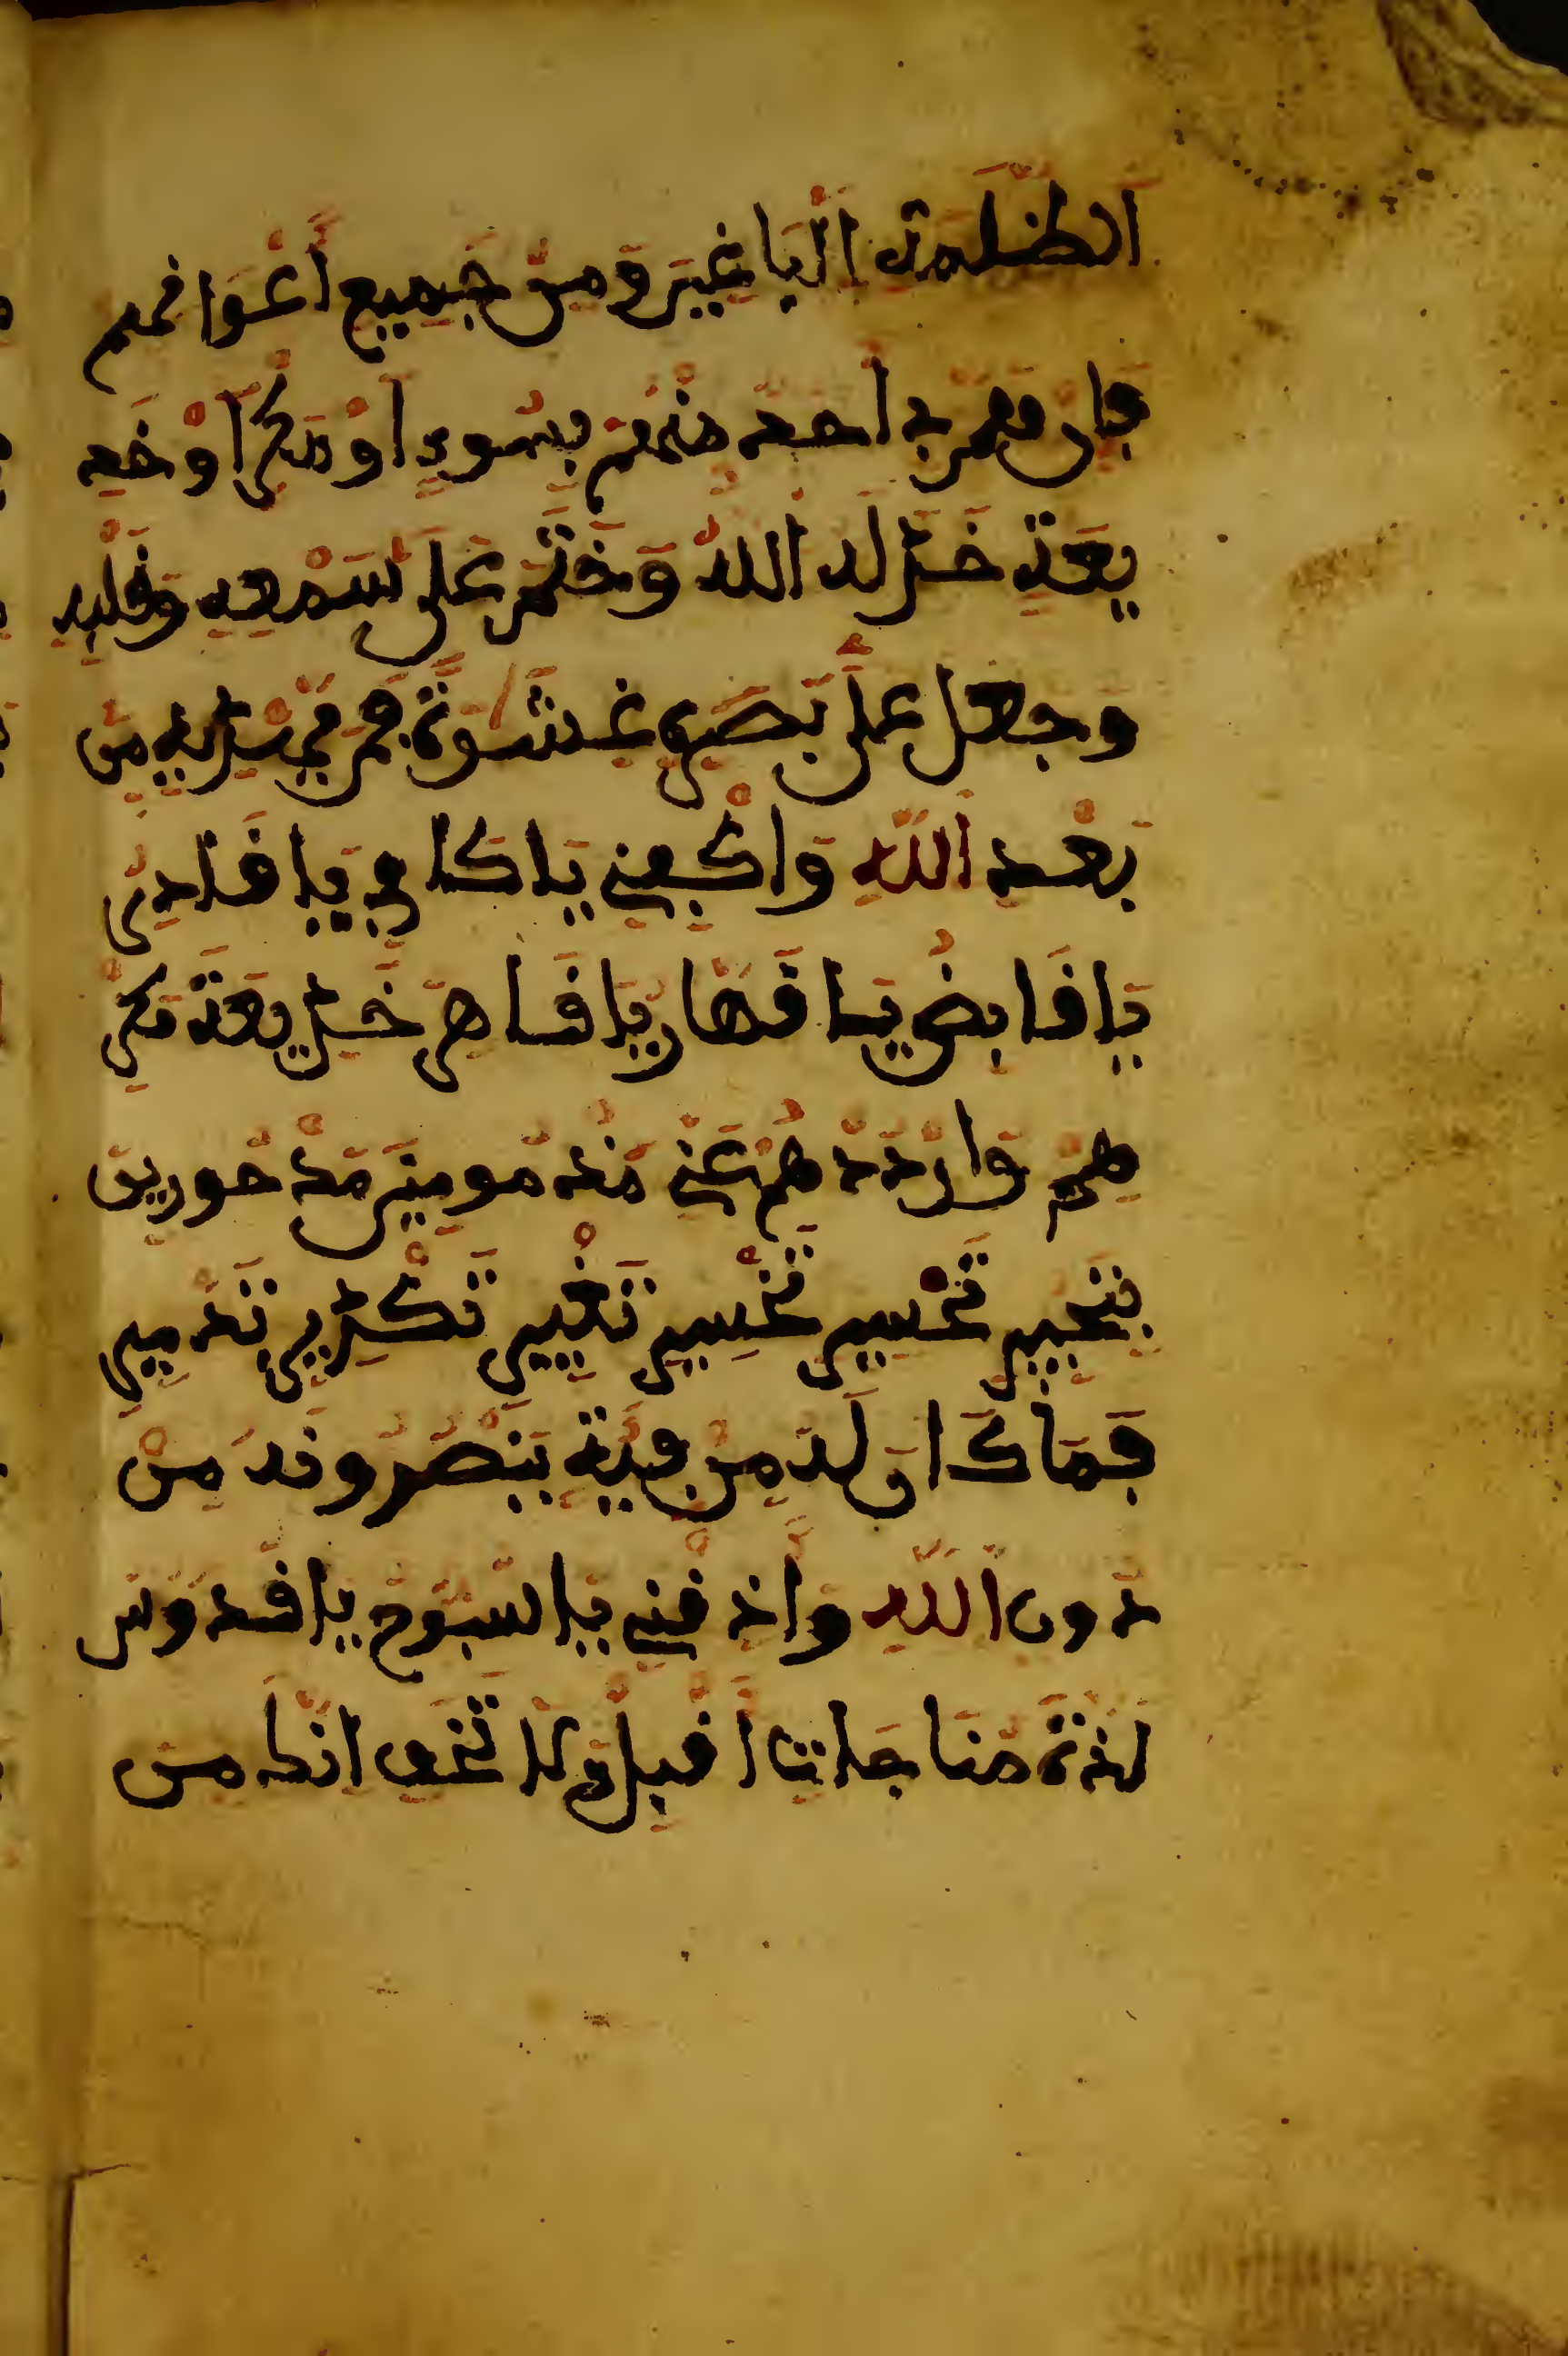 الظلمة الباغين ومن جميع أعوانهم
فإن همز بي أحد منهم بسوء أو مكر أو خد
يعة خذله الله وختم على سمعه وقلبه
وجعل على بصره غشوة فمن يهديه من
بعد الله واكفني يا كافي يا قادر
يا قابض يا قهار يا قاهر خديعة مكر
هم وارددهم عني مذمومين مدحورين
بتخبير تخسير تخسير تغيير تكدير تدمير
فما كان له من فية ينصرونه من
دون الله وأذقني يا سبوح يا قدوس
لذة مناجات أقبل ولا تخف إنك من